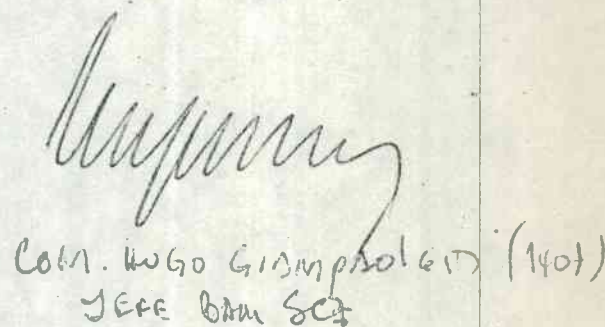 COM. HUGO GIAMPAOLETTI (1401)
JEFE BAM SCZ